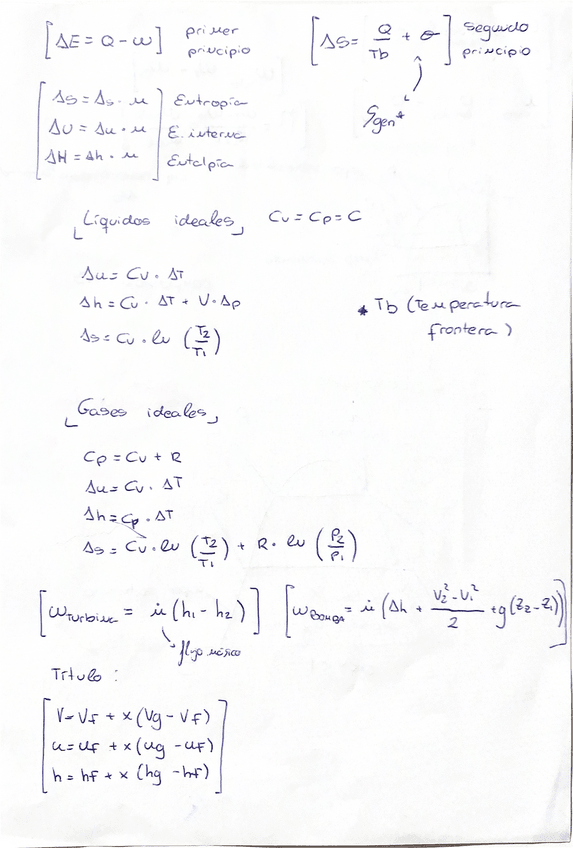 [ΔE = Q - W] primer principio
[ΔS = Q/Tb + σ] segundo principio
Sgen*
ΔS = Δs · m Entropía
ΔU = Δu · m E. interna
ΔH = Δh · m Entalpía
Líquidos ideales Cv = Cp = C
Δu = Cv · ΔT
Δh = Cv · ΔT + V · Δp
* Tb (Temperatura frontera)
Δs = Cv · ln (T2/T1)
Gases ideales
Cp = Cv + R
Δu = Cv · ΔT
Δh = Cp · ΔT
Δs = Cv · ln (T2/T1) + R · ln (P2/P1)
[WTurbina = ṁ (h1 - h2)]
[WBomba = ṁ (Δh + (V2² - V1²)/2 + g(Z2 - Z1))]
flujo másico
Título :
V = Vf + x (Vg - Vf)
u = uf + x (ug - uf)
h = hf + x (hg - hf)